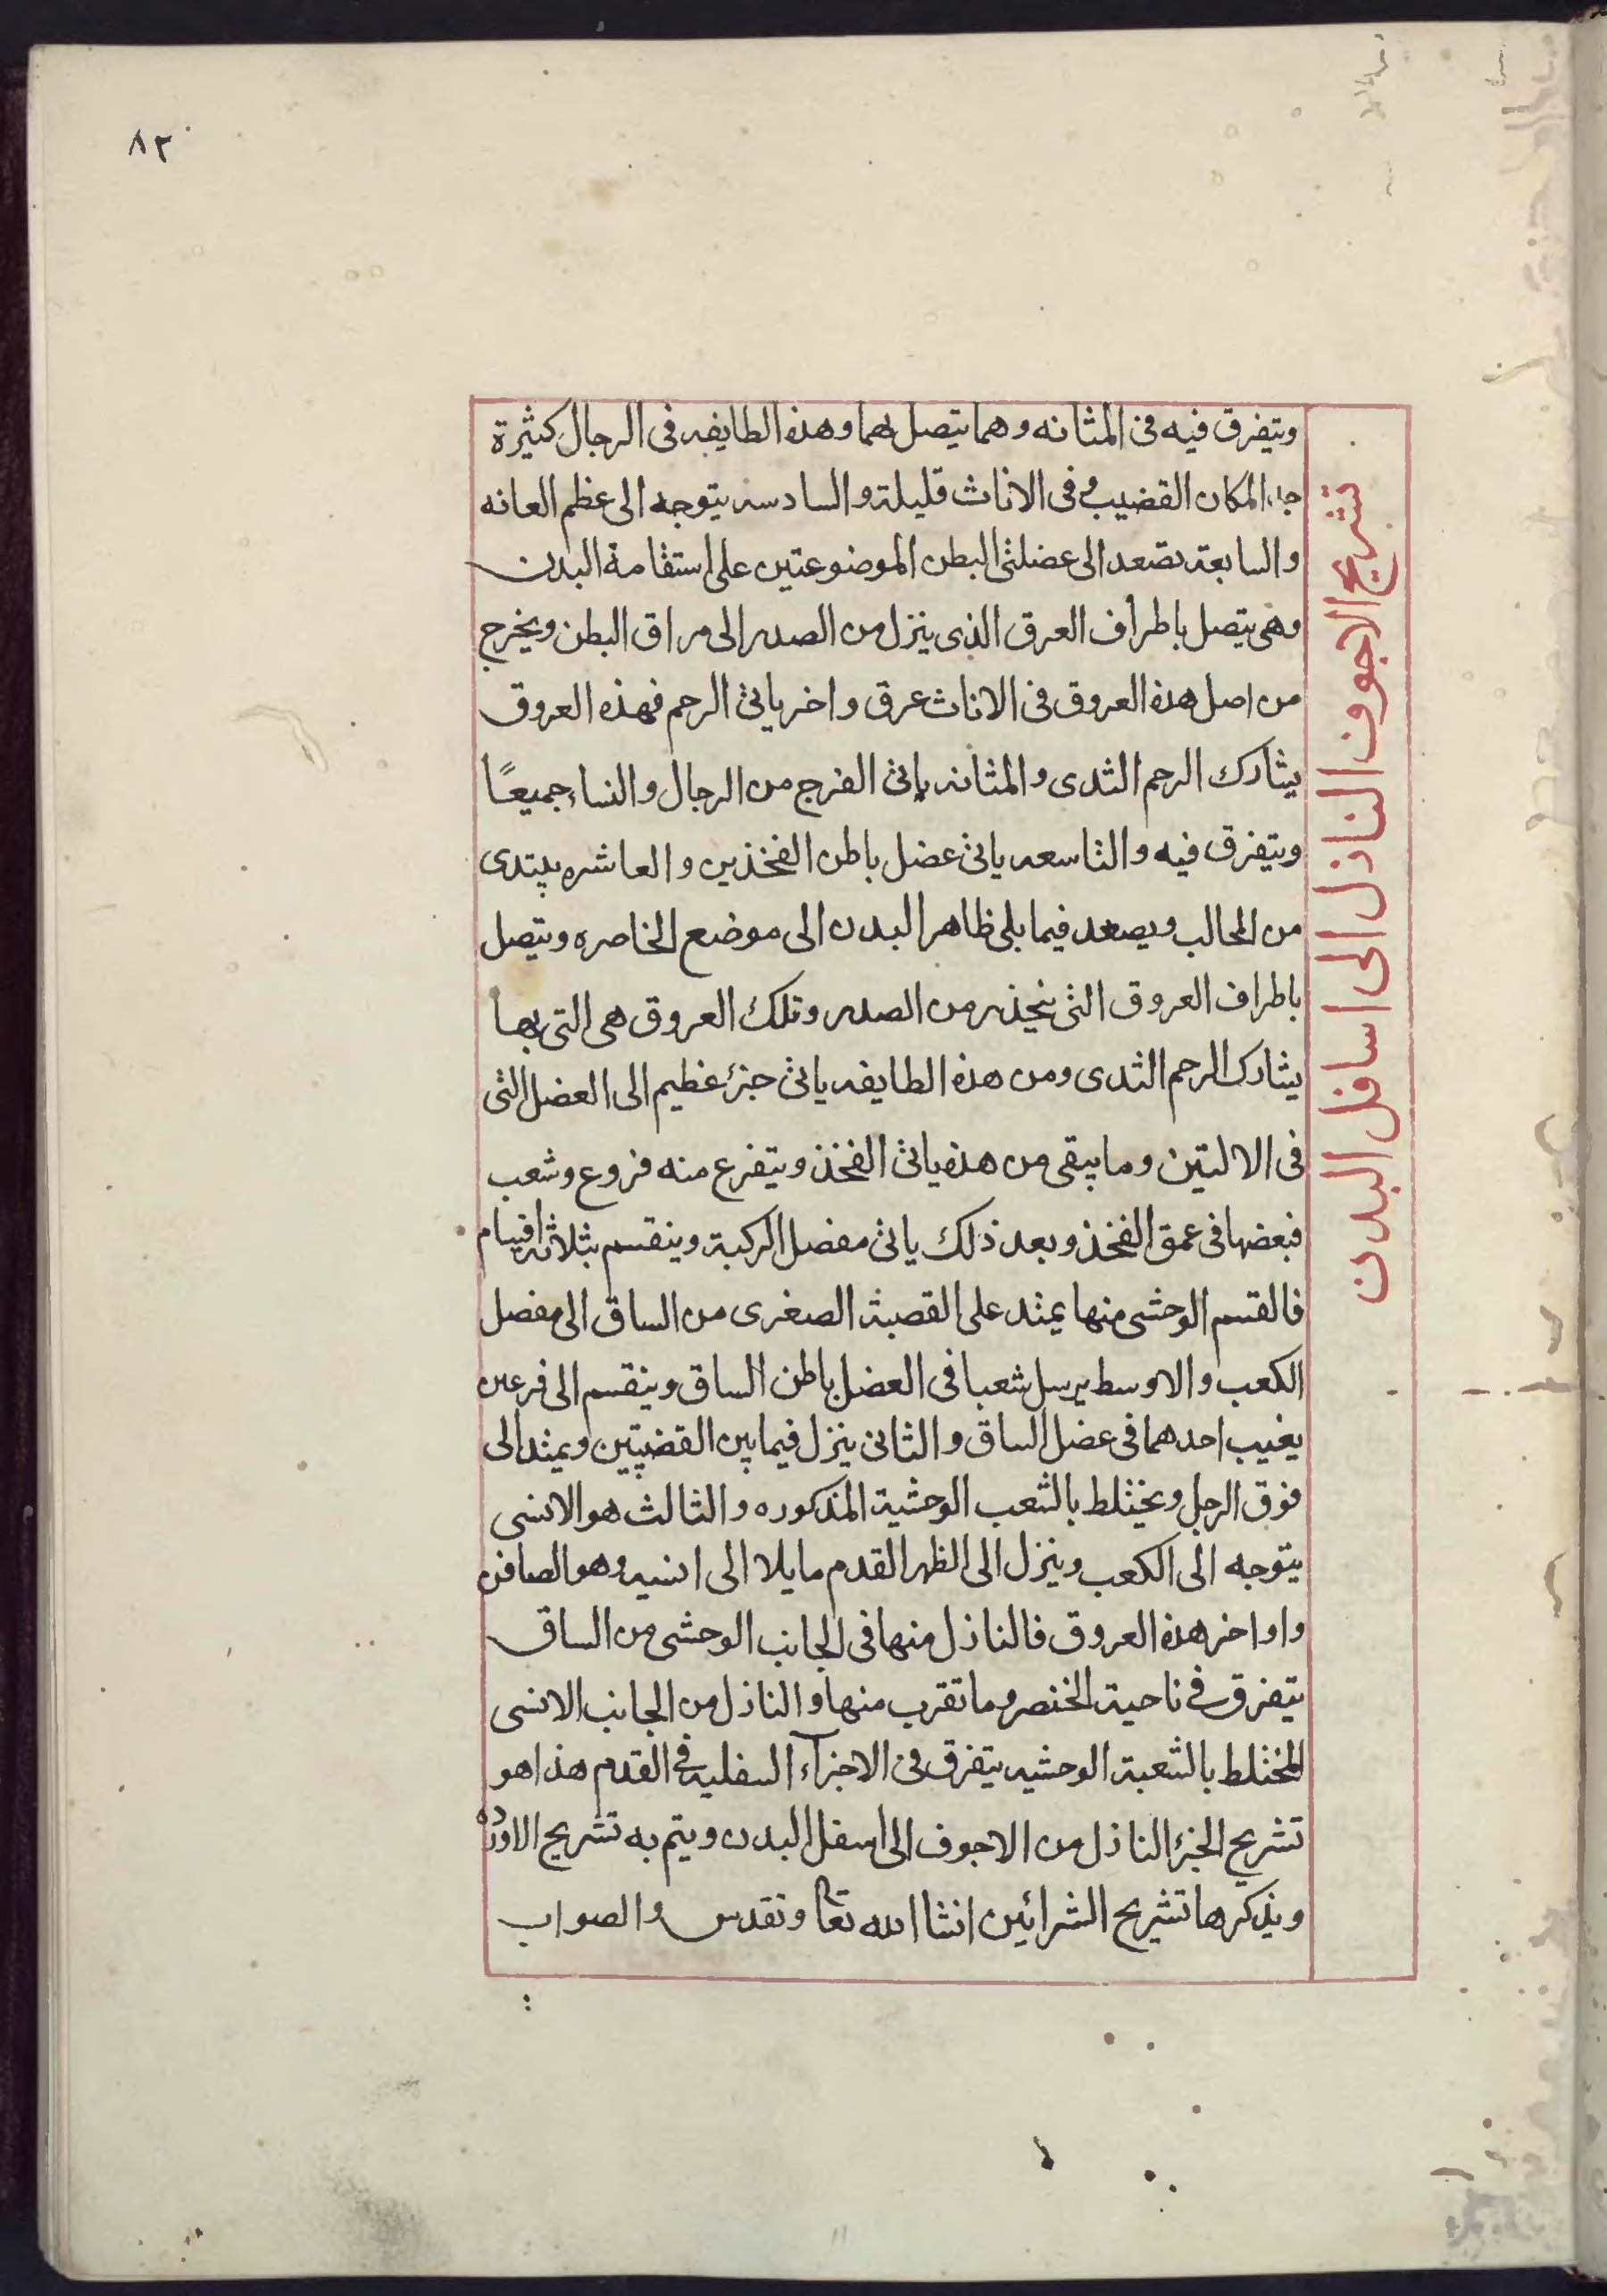 ٨٢
تشريح الاجوف النازل الى اسافل البدن
ويتفرق فيه فى المثانه وهما يتصل بهما وهذه الطايفه فى الرجال كثيرة
المكان القضيب وفى الاناث قليلة والسادسه يتوجه الى عظم العانه
والسابعة يصعد الى عضلتى البطن الموضوعتين على استقامة البدن
وهى يتصل باطراف العرق الذى ينزل من الصدر الى مراق البطن ويخرج
من اصل هذه العروق فى الاناث عرق واخر ياتى الرحم فهذه العروق
يشارك الرحم الثدى والمثانه ياتى الفرج من الرجال والنساء جميعًا
ويتفرق فيه والتاسعه ياتى عضل باطن الفخذين والعاشره يبتدى
من الحالب ويصعد فيما يلى ظاهر البدن الى موضع الخاصره ويتصل
باطراف العروق التى ينحذر من الصدر وتلك العروق هى التى بها
يشارك الرحم الثدى ومن هذه الطايفه ياتى جزء عظيم الى العضل التى
فى الاليتين وما يبقى من هذه ياتى الفخذ ويتفرع منه فروع وشعب
فبعضها فى عمق الفخذ وبعد ذلك ياتى مفصل الركبة وينقسم بثلاثة اقسام
فالقسم الوحشى منها يمتد على القصبة الصغرى من الساق الى مفصل
الكعب والاوسط يرسل شعبا فى العضل باطن الساق وينقسم الى فرعين
يغيب احدهما فى عضل الساق والثانى ينزل فيما بين القضيتين ويمتد الى
فوق الرجل ويختلط بالشعب الوحشية المذكوره والثالث هو الانسى
يتوجه الى الكعب وينزل الى الظهر القدم مايلا الى انسيه وهو الصافن
واواخر هذه العروق فالنازل منها فى الجانب الوحشى من الساق
يتفرق فى ناحية الخنصر وما تقرب منها والنازل من الجانب الانسى
المختلط بالشعبة الوحشيه يتفرق فى الاجزآء السفليه فى القدم هذا هو
تشريح الجزء النازل من الاجوف الى اسفل البدن ويتم به تشريح الاورده
ويذكرها تشريح الشرائين انشا الله تعا وتقدس والصواب